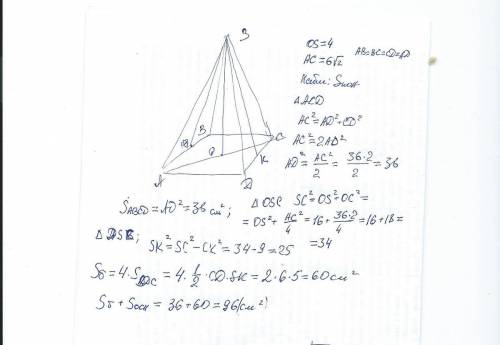 S
OS=4
AC=6√2
AB=BC=CD=AD
Найти: Sпол
△ACD
AC²=AD²+CD²
AC²=2AD²
AD²=AC²/2=36·2/2=36
B
C
K
O
A
D
SABCD=AD²=36 см²;
△OSC SC²=OS²+OC²=
=OS²+AC²/4=16+36·2/4=16+18=
=34
SK²=SC²-CK²=34-9=25
Sб=4·SDSC=4·1/2·CD·SK=2·6·5=60см²
Sб+Sосн=36+60=96(см²)